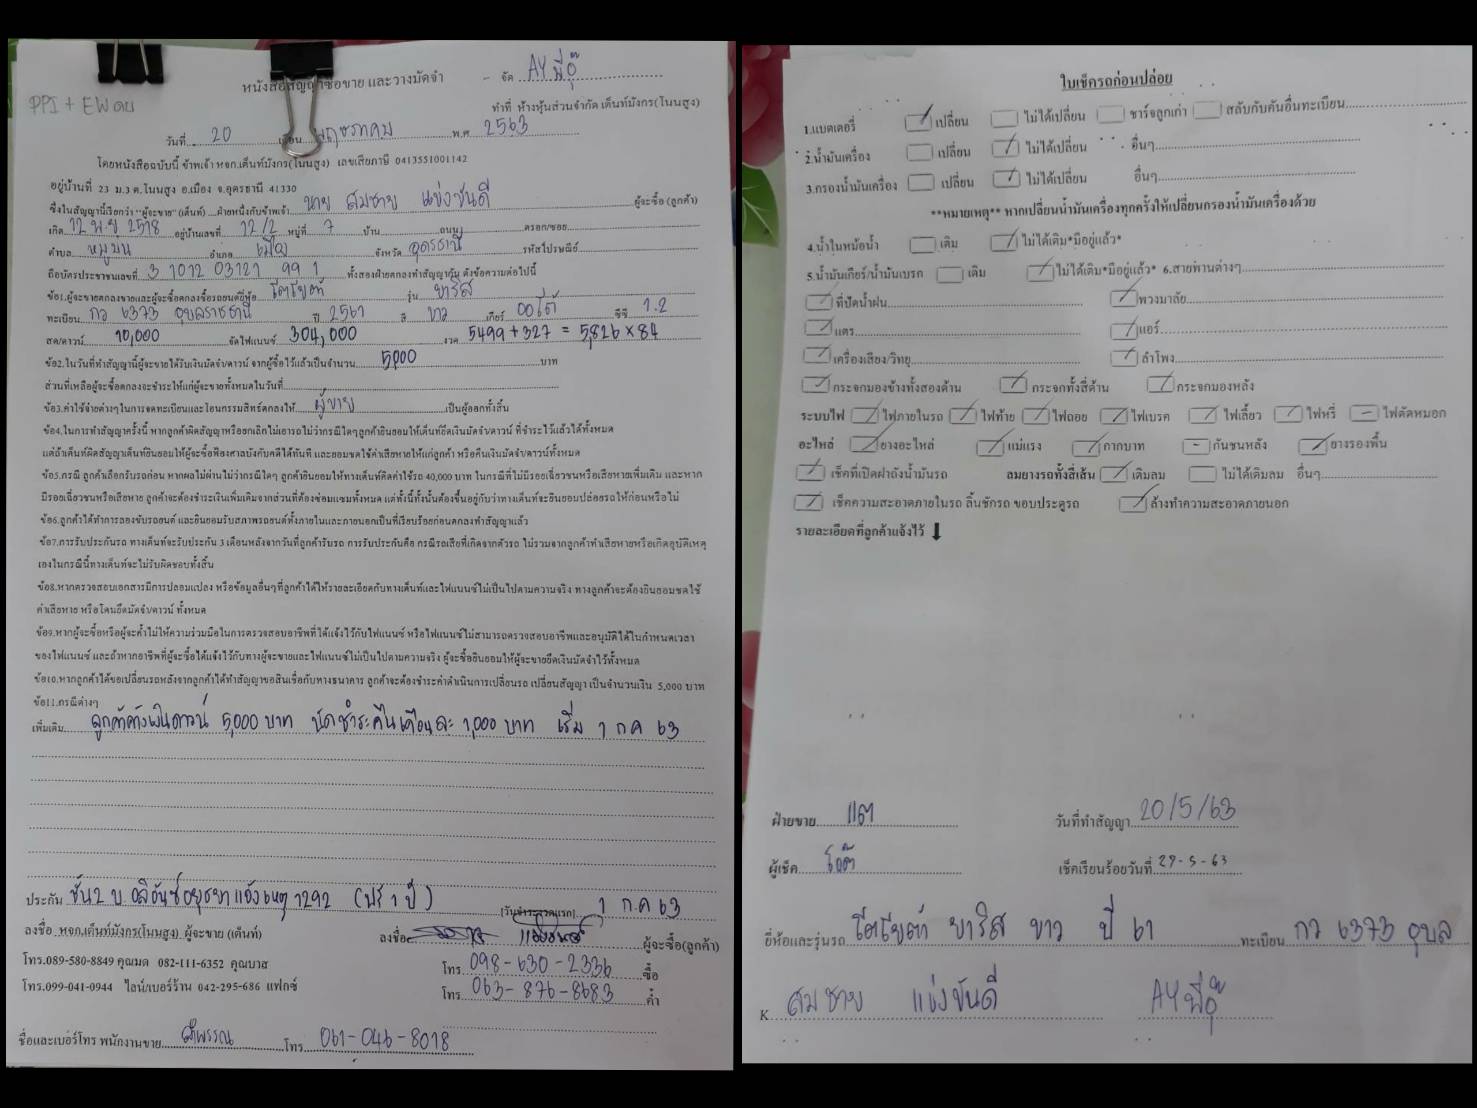 หนังสือสัญญาซื้อขาย และวางมัดจำ - จัด AY พี่อุ๊
PPI + EW
ทำที่ ห้างหุ้นส่วนจำกัด เต็นท์มังกร(โนนสูง)
วันที่ 20 เดือน พฤษภาคม พ.ศ. 2563
โดยหนังสือฉบับนี้ ข้าพเจ้า หจก.เต็นท์มังกร(โนนสูง) เลขเสียภาษี 0413551001142
อยู่บ้านที่ 23 ม.3 ต.โนนสูง อ.เมือง จ.อุดรธานี 41330
ซึ่งในสัญญานี้เรียกว่า "ผู้จะขาย" (เต็นท์) ....ฝ่ายหนึ่งกับข้าพเจ้า นาย สมชาย แข่งขันดี ผู้จะซื้อ (ลูกค้า)
เกิด 12 พ.ย 2518 อยู่บ้านเลขที่ 12/2 หมู่ที่ 7 บ้าน ถนน ตรอก/ซอย
ตำบล หมูม่น อำเภอ เมือง จังหวัด อุดรธานี รหัสไปรษณีย์
ถือบัตรประชาชนเลขที่ 3 1012 03121 99 1 ทั้งสองฝ่ายตกลงทำสัญญากัน ดังข้อความต่อไปนี้
ข้อ1.ผู้จะขายตกลงขายและผู้จะซื้อตกลงซื้อรถยนต์ยี่ห้อ โตโยต้า รุ่น ยาริส
ทะเบียน กว 6373 อุบลราชธานี ปี 2561 สี ขาว เกียร์ ออโต้ ซีซี 1.2
สด/ดาวน์ 10,000 จัดไฟแนนซ์ 304,000 งวด 5499 + 327 = 5,826 x 84
ข้อ2.ในวันที่ทำสัญญานี้ผู้จะขายได้รับเงินมัดจำ/ดาวน์ จากผู้ซื้อไว้แล้วเป็นจำนวน 5,000 บาท
ส่วนที่เหลือผู้จะซื้อตกลงจะชำระให้แก่ผู้จะขายทั้งหมดในวันที่
ข้อ3.ค่าใช้จ่ายต่างๆในการจดทะเบียนและโอนกรรมสิทธิ์ตกลงให้ ผู้ขาย เป็นผู้ออกทั้งสิ้น
ข้อ4.ในการทำสัญญาครั้งนี้ หากลูกค้าผิดสัญญาหรือยกเลิกไม่เอารถไม่ว่ากรณีใดๆลูกค้ายินยอมให้เต็นท์ยึดเงินมัดจำ/ดาวน์ ที่ชำระไว้แล้วได้ทั้งหมด
แต่ถ้าเต็นท์ผิดสัญญาเต็นท์ยินยอมให้ผู้จะซื้อฟ้องศาลบังคับคดีได้ทันที และยอมชดใช้ค่าเสียหายให้แก่ลูกค้า หรือคืนเงินมัดจำ/ดาวน์ทั้งหมด
ข้อ5.กรณี ลูกค้าเลือกรับรถก่อน หากผลไม่ผ่านไม่ว่ากรณีใดๆ ลูกค้ายินยอมให้ทางเต็นท์คิดค่าใช้รถ 40,000 บาท ในกรณีที่ไม่มีรอยเฉี่ยวชนหรือเสียหายเพิ่มเติม และหาก
มีรอยเฉี่ยวชนหรือเสียหาย ลูกค้าจะต้องชำระเงินเพิ่มเติมจากส่วนที่ต้องซ่อมแซมทั้งหมด แต่ทั้งนี้ทั้งนั้นต้องขึ้นอยู่กับว่าทางเต็นท์จะยินยอมปล่อยรถให้ก่อนหรือไม่
ข้อ6.ลูกค้าได้ทำการลองขับรถยนต์ และยินยอมรับสภาพรถยนต์ทั้งภายในและภายนอกเป็นที่เรียบร้อยก่อนตกลงทำสัญญาแล้ว
ข้อ7.การรับประกันรถ ทางเต็นท์จะรับประกัน 3 เดือนหลังจากวันที่ลูกค้ารับรถ การรับประกันคือ กรณีรถเสียที่เกิดจากตัวรถ ไม่รวมจากลูกค้าทำเสียหายหรือเกิดอุบัติเหตุ
เองในกรณีนี้ทางเต็นท์จะไม่รับผิดชอบทั้งสิ้น
ข้อ8.หากตรวจสอบเอกสารมีการปลอมแปลง หรือข้อมูลอื่นๆที่ลูกค้าได้ให้รายละเอียดกับทางเต็นท์และไฟแนนซ์ไม่เป็นไปตามความจริง ทางลูกค้าจะต้องยินยอมชดใช้
ค่าเสียหาย หรือโดนยึดมัดจำ/ดาวน์ ทั้งหมด
ข้อ9.หากผู้จะซื้อหรือผู้จะค้ำไม่ให้ความร่วมมือในการตรวจสอบอาชีพที่ได้แจ้งไว้กับไฟแนนซ์ หรือไฟแนนซ์ไม่สามารถตรวจสอบอาชีพและอนุมัติได้ในกำหนดเวลา
ของไฟแนนซ์ และถ้าหากอาชีพที่ผู้จะซื้อได้แจ้งไว้กับทางผู้จะขายและไฟแนนซ์ไม่เป็นไปตามความจริง ผู้จะซื้อยินยอมให้ผู้จะขายยึดเงินมัดจำไว้ทั้งหมด
ข้อ10.หากลูกค้าได้ขอเปลี่ยนรถหลังจากลูกค้าได้ทำสัญญาขอสินเชื่อกับทางธนาคาร ลูกค้าจะต้องชำระค่าดำเนินการเปลี่ยนรถ เปลี่ยนสัญญา เป็นจำนวนเงิน 5,000 บาท
ข้อ11.กรณีต่างๆ
เพิ่มเติม ลูกค้าค้างเงินดาวน์ 5,000 บาท นัดชำระคืนเดือนละ 1,000 บาท เริ่ม 1 ก.ค 63
ประกัน ชั้น2 บ. อลิอันซ์อยุธยา แจ้งเหตุ 1292 (ฟรี 1 ปี) (วันชำระงวดแรก) 1 ก.ค 63
ลงชื่อ หจก.เต็นท์มังกร(โนนสูง) ผู้จะขาย (เต็นท์) ลงชื่อ ผู้จะซื้อ(ลูกค้า)
โทร.089-580-8849 คุณมด 082-111-6352 คุณบาส โทร 098-630-2336 ซื้อ
โทร.099-041-0944 ไลน์/เบอร์ร้าน 042-295-686 แฟกซ์ โทร 063-876-8683 ค้ำ
ชื่อและเบอร์โทร พนักงานขาย โทร 061-046-8018
ใบเช็ครถก่อนปล่อย
1.แบตเตอรี่ เปลี่ยน ไม่ได้เปลี่ยน ชาร์จลูกเก่า สลับกับคันอื่นทะเบียน
2.น้ำมันเครื่อง เปลี่ยน ไม่ได้เปลี่ยน อื่นๆ
3.กรองน้ำมันเครื่อง เปลี่ยน ไม่ได้เปลี่ยน อื่นๆ
**หมายเหตุ** หากเปลี่ยนน้ำมันเครื่องทุกครั้งให้เปลี่ยนกรองน้ำมันเครื่องด้วย
4.น้ำในหม้อน้ำ เติม ไม่ได้เติม*มีอยู่แล้ว*
5.น้ำมันเกียร์/น้ำมันเบรก เติม ไม่ได้เติม*มีอยู่แล้ว* 6.สายพานต่างๆ
ที่ปัดน้ำฝน พวงมาลัย
แตร แอร์
เครื่องเสียง/วิทยุ ลำโพง
กระจกมองข้างทั้งสองด้าน กระจกทั้งสี่ด้าน กระจกมองหลัง
ระบบไฟ ไฟภายในรถ ไฟท้าย ไฟถอย ไฟเบรค ไฟเลี้ยว ไฟหรี่ ไฟตัดหมอก
อะไหล่ ยางอะไหล่ แม่แรง กากบาท กันชนหลัง ยางรองพื้น
เช็คที่เปิดฝาถังน้ำมันรถ ลมยางรถทั้งสี่เส้น เติมลม ไม่ได้เติมลม อื่นๆ
เช็คความสะอาดภายในรถ ลิ้นชักรถ ขอบประตูรถ ล้างทำความสะอาดภายนอก
รายละเอียดที่ลูกค้าแจ้งไว้
ฝ่ายขาย แต วันที่ทำสัญญา 20/5/63
ผู้เช็ค โอ๊ต เช็คเรียบร้อยวันที่ 29-5-63
ยี่ห้อและรุ่นรถ โตโยต้า ยาริส ขาว ปี 61 ทะเบียน กว 6373 อุบล
K สมชาย แข่งขันดี AY พี่อุ๊